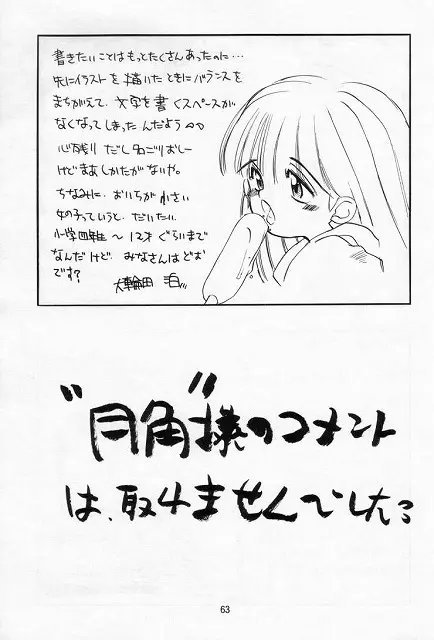 書きたいことはもっとたくさんあったのに…
先にイラストを描いたときにバランスを
まちがえて、文字を書くスペースが
なくなってしまったんだよう
心残りだし名ごりおしー
けどまあしかたがないや。
ちなみに、おいちが小さい
女の子っていうと、だいたい、
小学四年〜12才ぐらいまで
なんだけど、みなさんはどお
です?
大輪田 泊
"月角"様のコメント
は、取れませんでした。
63